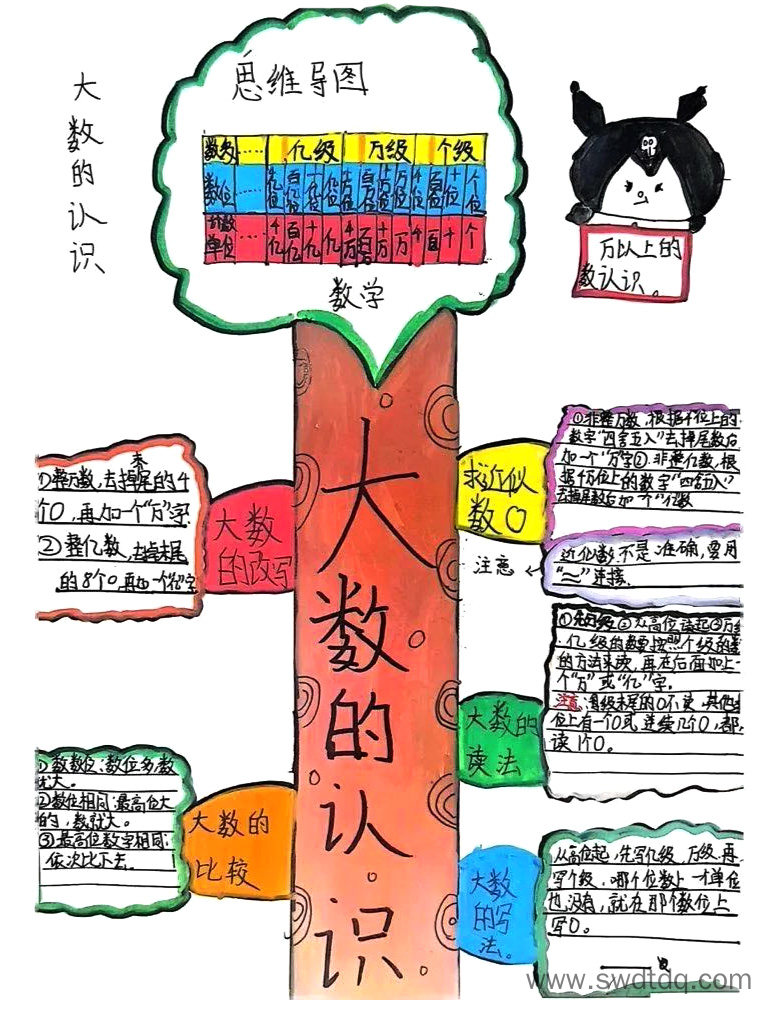 大数的认识
思维导图
数级 …… 亿级 万级 个级
数位 …… 千亿位 百亿位 十亿位 亿位 千万位 百万位 十万位 万位 千位 百位 十位 个位
计数单位 …… 千亿 百亿 十亿 亿 千万 百万 十万 万 千 百 十 个
数学
万以上的
数认识。
大数的认识。
求近似
数
①非整万数,根据千位上的
数字“四舍五入”去掉尾数后
加一个“万字②.非整亿数,根
据千万位上的数字“四舍五入”
去掉尾数后加一个“亿数
注意
近似数不是准确,要用
“≈”连接.
大数
的改写
①整万数,去掉末尾的4
个0,再加一个“万”字
②整亿数,去掉末尾
的8个0,再加一个“亿”字
大数的
读法
①先分级②从高位读起③万级
.亿级的数要按照个级的数
的方法来读,再在后面加上一
个“万”或“亿”字.
注意:每级末尾的0不读,其他数
位上有一个0或连续几个0,都
读1个0。
大数的
比较
①数数位:数位多,数
就大。
②数位相同:最高位大
的,数就大。
③最高位数字相同:
依次比下去.
大数
的写
法。
从高位起,先写亿级,万级,再
写个级,哪个位数上一个单位
也没有,就在那个数位上
写0。
www.swdtdq.com